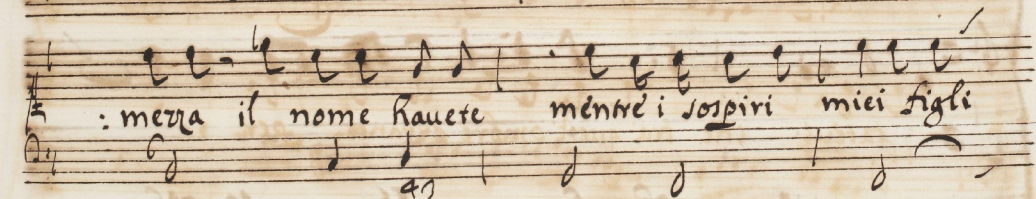 : mezza il nome hauete mentre i sospiri miei figli
42